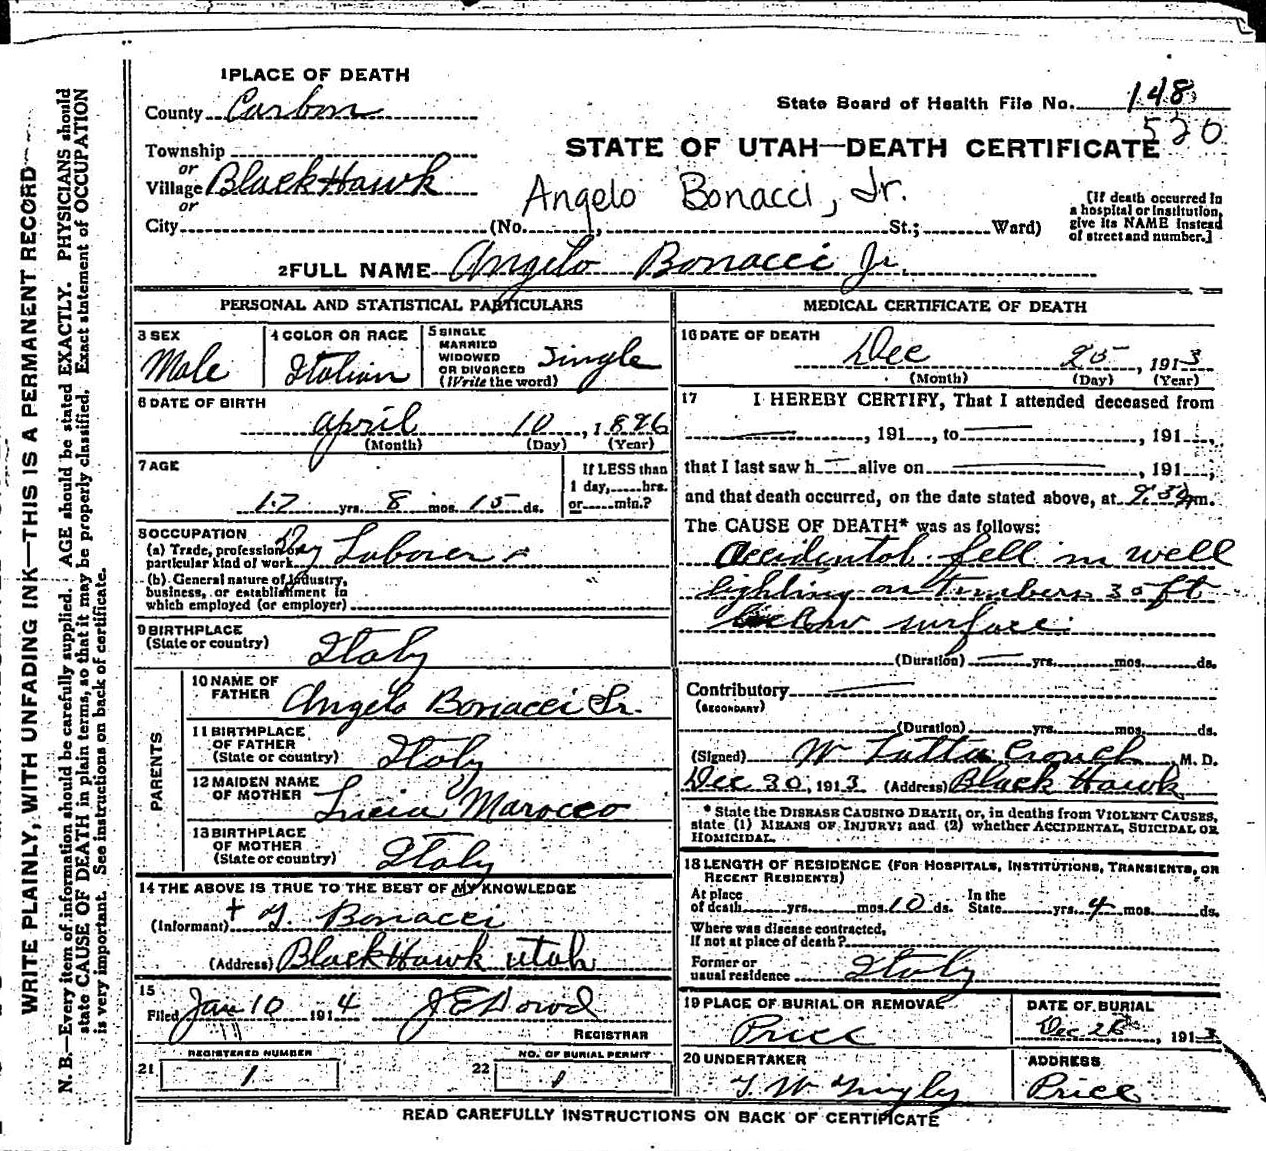 1 PLACE OF DEATH
County Carbon
State Board of Health File No. 148
520
Township
or
Village Black Hawk
or
City (No. , St.; Ward)
STATE OF UTAH—DEATH CERTIFICATE
Angelo Bonacci, Jr.
[If death occurred in
a hospital or institution,
give its NAME instead
of street and number.]
2 FULL NAME Angelo Bonacci Jr.
PERSONAL AND STATISTICAL PARTICULARS
3 SEX
Male
4 COLOR OR RACE
Italian
5 SINGLE
MARRIED
WIDOWED
OR DIVORCED
(Write the word)
Single
6 DATE OF BIRTH
April 10, 1896
(Month) (Day) (Year)
7 AGE
17 yrs. 8 mos. 15 ds.
If LESS than
1 day, hrs.
or min.?
8 OCCUPATION
(a) Trade, profession or
particular kind of work Day Laborer
(b) General nature of industry,
business, or establishment in
which employed (or employer)
9 BIRTHPLACE
(State or country)
Italy
PARENTS
10 NAME OF
FATHER Angelo Bonacci Sr.
11 BIRTHPLACE
OF FATHER
(State or country) Italy
12 MAIDEN NAME
OF MOTHER Lucia Marocco
13 BIRTHPLACE
OF MOTHER
(State or country) Italy
14 THE ABOVE IS TRUE TO THE BEST OF MY KNOWLEDGE
(Informant) Bonacci
(Address) Black Hawk Utah
15
Filed Jan 10 1914 J E Dowd
REGISTRAR
REGISTERED NUMBER
21 1
NO. OF BURIAL PERMIT
22 1
MEDICAL CERTIFICATE OF DEATH
16 DATE OF DEATH
Dec 25, 1913
(Month) (Day) (Year)
17 I HEREBY CERTIFY, That I attended deceased from
, 191 , to , 191 ,
that I last saw h alive on , 191 ;
and that death occurred, on the date stated above, at m.
The CAUSE OF DEATH* was as follows:
Accidental fell in well
lighting on timbers 30 ft
below surface.
(Duration) yrs. mos. ds.
Contributory
(SECONDARY)
(Duration) yrs. mos. ds.
(Signed) W Crouch, M. D.
Dec 30, 1913 (Address) Black Hawk
* State the DISEASE CAUSING DEATH, or, in deaths from VIOLENT CAUSES,
state (1) MEANS OF INJURY; and (2) whether ACCIDENTAL, SUICIDAL OR
HOMICIDAL.
18 LENGTH OF RESIDENCE (FOR HOSPITALS, INSTITUTIONS, TRANSIENTS, OR
RECENT RESIDENTS)
At place
of death yrs. mos. 10 ds.
In the
State yrs. 4 mos. ds.
Where was disease contracted,
if not at place of death?
Former or
usual residence Italy
19 PLACE OF BURIAL OR REMOVAL
Price
DATE OF BURIAL
Dec 28, 1913
20 UNDERTAKER
ADDRESS
Price
READ CAREFULLY INSTRUCTIONS ON BACK OF CERTIFICATE
WRITE PLAINLY, WITH UNFADING INK—THIS IS A PERMANENT RECORD
N. B.—Every item of information should be carefully supplied. AGE should be stated EXACTLY. PHYSICIANS should
state CAUSE OF DEATH in plain terms, so that it may be properly classified. Exact statement of OCCUPATION
is very important. See instructions on back of certificate.